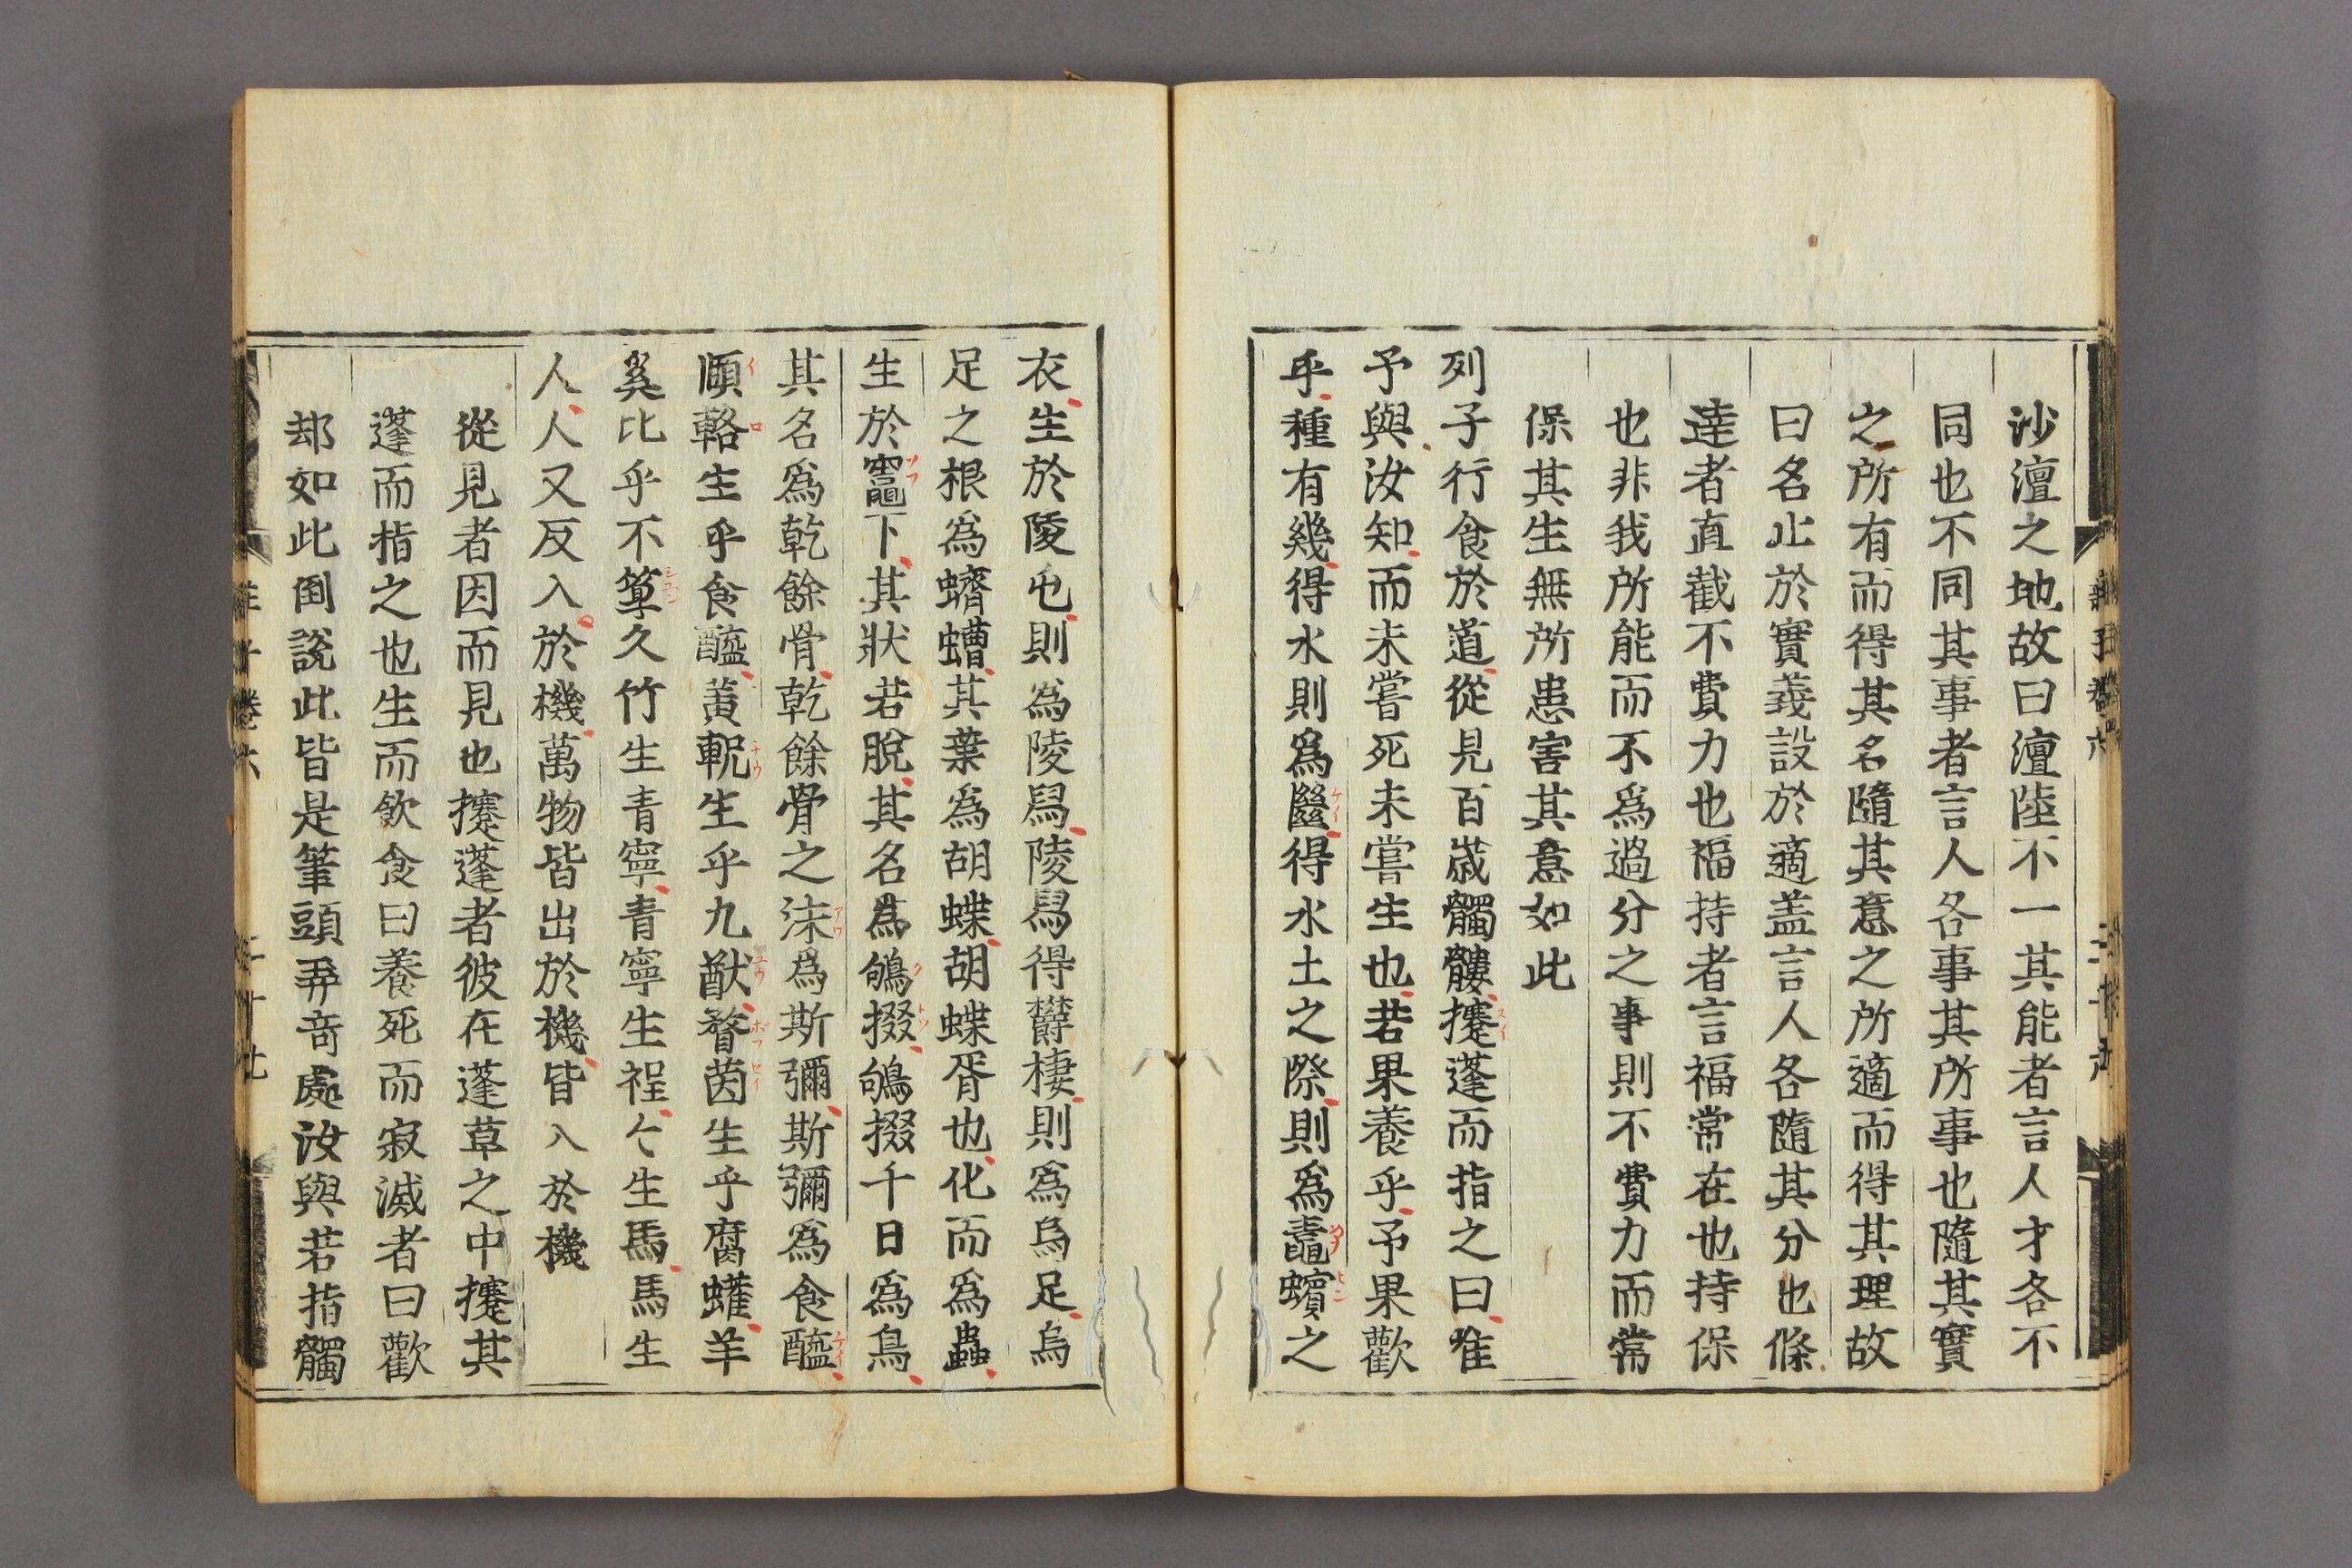 沙澶之地故曰澶陸不一其能者言人才各不
同也不同其事者言人各事其所事也隨其實
之所有而得其名隨其意之所適而得其理故
曰名止於實義設於適盖言人各隨其分也條
達者直截不費力也福持者言福常在也持保
也非我所能而不爲過分之事則不費力而常
保其生無所患害其意如此
列子行食於道從見百歳髑髏攓蓬而指之曰惟
予與汝知而未嘗死未嘗生也若果養乎予果歡
乎種有幾得水則爲㡭得水土之際則爲鼃蠙之
衣生於陵屯則爲陵舄陵舄得欝棲則爲烏足烏
足之根爲蠐螬其葉爲胡蝶胡蝶胥也化而爲蟲
生於竈下其狀若脫其名爲鴝掇鴝掇千日爲鳥
其名爲乾餘骨乾餘骨之沫爲斯彌斯彌爲食醯
頤輅生乎食醯黃軦生乎九猷瞀芮生乎腐蠸羊
奚比乎不箰久竹生青寧青寧生程𠆢生馬馬生
人人又反入於機萬物皆出於機皆入於機
從見者因而見也攓蓬者彼在蓬草之中攓其
蓬而指之也生而飲食曰養死而寂滅者曰歡
却如此倒說此皆是筆頭弄奇處汝與若指髑
莊子卷六